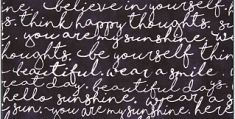 believe in yourself.
s. think happy thoughts. s
you are my sunshine. w
houghts. be yourself. thin
beautiful. wear a smile
eat day. beautiful day.
hello sunshine. wear a
s. you are my sunshine. here